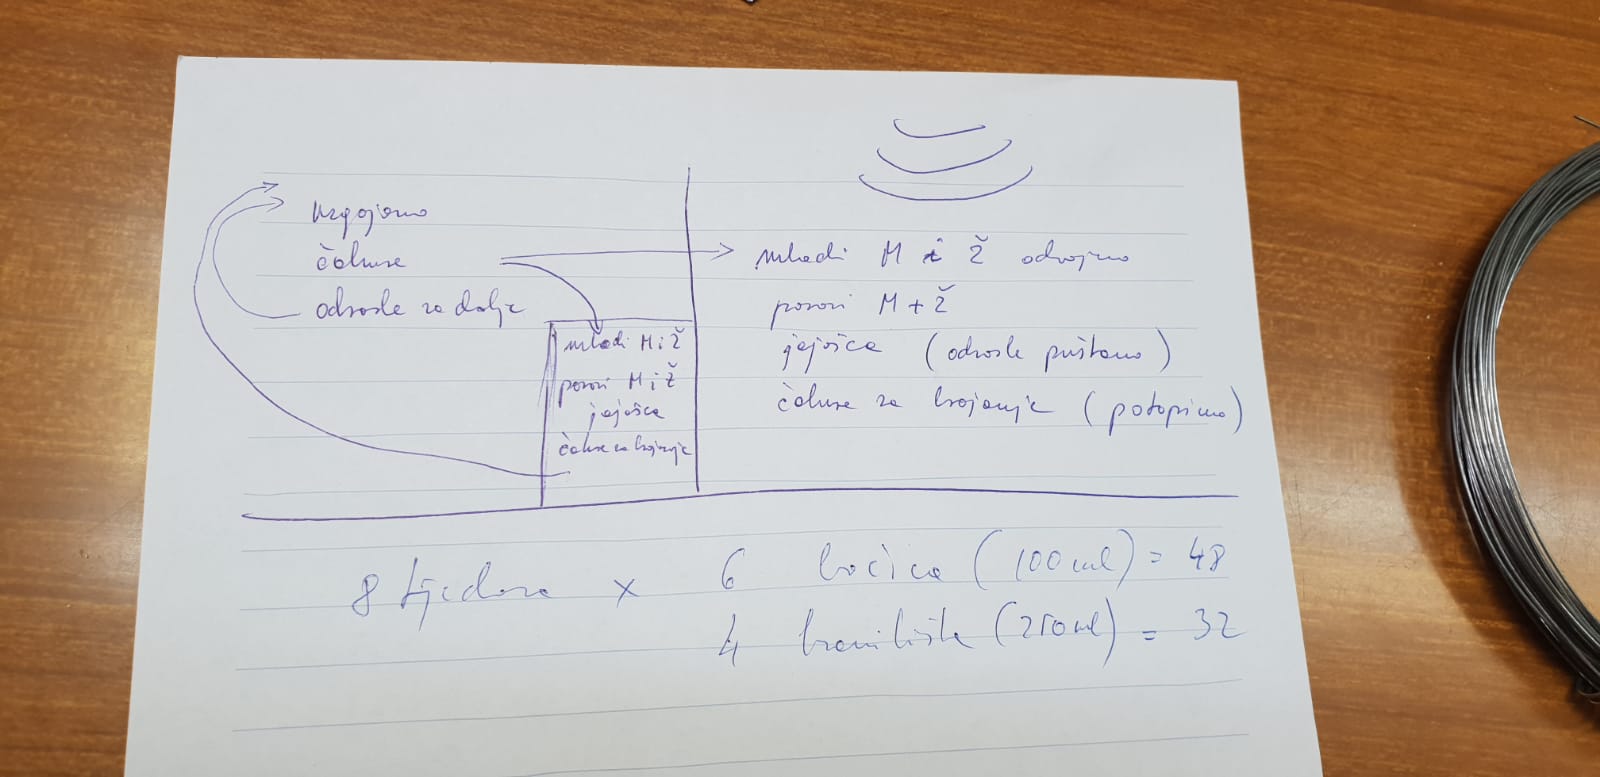 uzgojeno
čahure
odrasle za dalje
mladi M i Ž
parovi M i Ž
jajašca
čahure za brojanje
mladi M i Ž odvojeno
parovi M + Ž
jajašca (odrasle puštamo)
čahure za brojanje (potopimo)
8 tjedana x 6 bočica (100 ml) = 48
4 hranilišta (250 ml) = 32